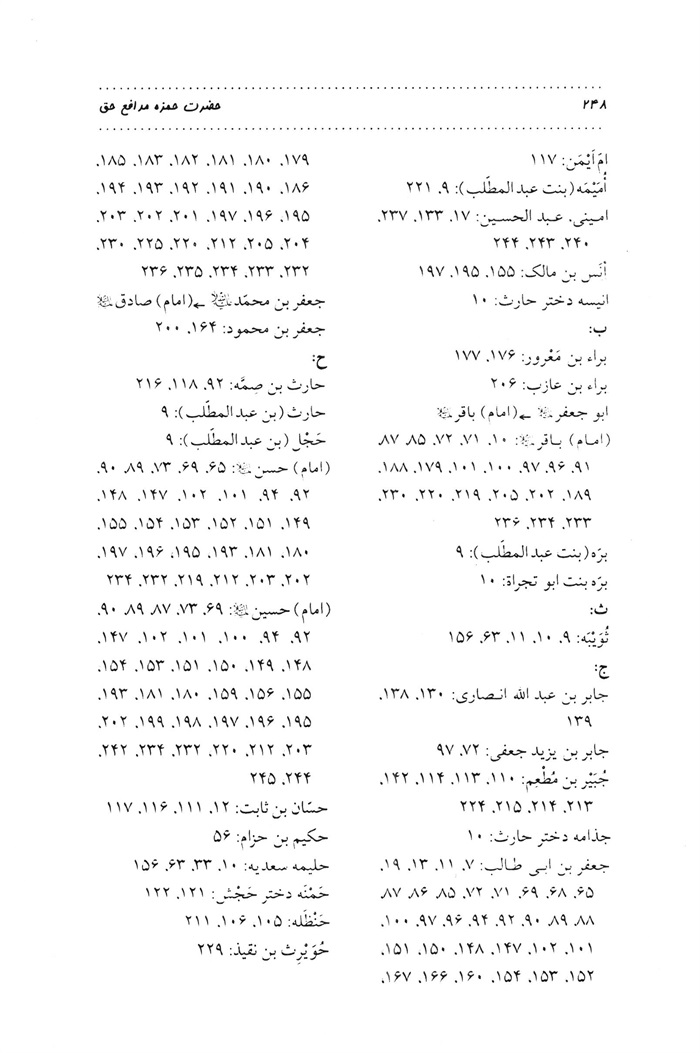 ۲۴۸
حضرت حمزه مدافع حق
امّ اَیْمَن: ۱۱۷
اُمَیْمَه (بنت عبد المطّلب): ۹، ۲۲۱
امینی، عبد الحسین: ۱۷، ۱۳۳، ۲۳۷،
۲۴۰، ۲۴۳، ۲۴۴
اَنَس بن مالک: ۱۵۵، ۱۹۵، ۱۹۷
انیسه دختر حارث: ۱۰
ب:
براء بن مَعْرور: ۱۷۶، ۱۷۷
براء بن عازب: ۲۰۶
ابو جعفر علیه‌السلام ← (امام) باقر علیه‌السلام
(امام) باقر علیه‌السلام: ۱۰، ۷۱، ۷۲، ۸۵، ۸۷،
۹۱، ۹۶، ۹۷، ۱۰۰، ۱۰۱، ۱۷۹، ۱۸۸،
۱۸۹، ۲۰۲، ۲۰۵، ۲۱۹، ۲۲۰، ۲۳۰،
۲۳۳، ۲۳۴، ۲۳۶
برّه (بنت عبد المطّلب): ۹
برّه بنت ابو تجراة: ۱۰
ث:
ثُوَیْبَه: ۹، ۱۰، ۱۱، ۶۳، ۱۵۶
ج:
جابر بن عبد الله انصاری: ۱۳۰، ۱۳۸،
۱۳۹
جابر بن یزید جعفی: ۷۲، ۹۷
جُبَیْر بن مُطْعِم: ۱۱۰، ۱۱۳، ۱۱۴، ۱۴۲،
۲۱۳، ۲۱۴، ۲۱۵، ۲۲۴
جذامه دختر حارث: ۱۰
جعفر بن ابی طالب: ۷، ۱۱، ۱۳، ۱۹،
۶۵، ۶۸، ۶۹، ۷۱، ۷۲، ۸۵، ۸۶، ۸۷،
۸۸، ۸۹، ۹۰، ۹۲، ۹۴، ۹۶، ۹۷، ۱۰۰،
۱۰۱، ۱۰۲، ۱۴۷، ۱۴۸، ۱۵۰، ۱۵۱،
۱۵۲، ۱۵۳، ۱۵۴، ۱۶۰، ۱۶۶، ۱۶۷،
۱۷۹، ۱۸۰، ۱۸۱، ۱۸۲، ۱۸۳، ۱۸۵،
۱۸۶، ۱۹۰، ۱۹۱، ۱۹۲، ۱۹۳، ۱۹۴،
۱۹۵، ۱۹۶، ۱۹۷، ۲۰۱، ۲۰۲، ۲۰۳،
۲۰۴، ۲۰۵، ۲۱۲، ۲۲۰، ۲۲۵، ۲۳۰،
۲۳۲، ۲۳۳، ۲۳۴، ۲۳۵، ۲۳۶
جعفر بن محمّد ← (امام) صادق علیه‌السلام
جعفر بن محمود: ۱۶۴، ۲۰۰
ح:
حارث بن صِمَّه: ۹۲، ۱۱۸، ۲۱۶
حارث (بن عبد المطّلب): ۹
حَجْل (بن عبد المطّلب): ۹
(امام) حسن علیه‌السلام: ۶۵، ۶۹، ۷۳، ۸۹، ۹۰،
۹۲، ۹۴، ۱۰۱، ۱۰۲، ۱۴۷، ۱۴۸،
۱۴۹، ۱۵۱، ۱۵۲، ۱۵۳، ۱۵۴، ۱۵۵،
۱۸۰، ۱۸۱، ۱۹۳، ۱۹۵، ۱۹۶، ۱۹۷،
۲۰۲، ۲۰۳، ۲۱۲، ۲۱۹، ۲۳۲، ۲۳۴
(امام) حسین علیه‌السلام: ۶۹، ۷۳، ۸۷، ۸۹، ۹۰،
۹۲، ۹۴، ۱۰۰، ۱۰۱، ۱۰۲، ۱۴۷،
۱۴۸، ۱۴۹، ۱۵۰، ۱۵۱، ۱۵۳، ۱۵۴،
۱۵۵، ۱۵۶، ۱۵۹، ۱۸۰، ۱۸۱، ۱۹۳،
۱۹۵، ۱۹۶، ۱۹۷، ۱۹۸، ۱۹۹، ۲۰۲،
۲۰۳، ۲۱۲، ۲۲۰، ۲۳۲، ۲۳۴، ۲۴۲،
۲۴۴، ۲۴۵
حسّان بن ثابت: ۱۲، ۱۱۱، ۱۱۶، ۱۱۷
حکیم بن حزام: ۵۶
حلیمه سعدیه: ۱۰، ۳۳، ۶۳، ۱۵۶
حَمْنَه دختر حَجْش: ۱۲۱، ۱۲۲
حَنْظَله: ۱۰۵، ۱۰۶، ۲۱۱
حُوَیْرِث بن نقیذ: ۲۲۹